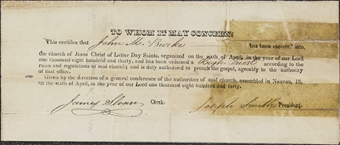 TO WHOM IT MAY CONCERN:
This certifies that John M. Burke has been received into
the church of Jesus Christ of Latter Day Saints, organized on the sixth of April, in the year of our Lord
one thousand eight hundred and thirty, and has been ordained a High Priest according to the
rules and regulations of said church; and is duly authorized to preach the gospel, agreeably to the authority
of that office.
Given by the direction of a general conference of the authorities of said church, assembled in Nauvoo, Ill.
on the sixth of April, in the year of our Lord one thousand eight hundred and forty.
James Sloan Clerk. Joseph Smith President.